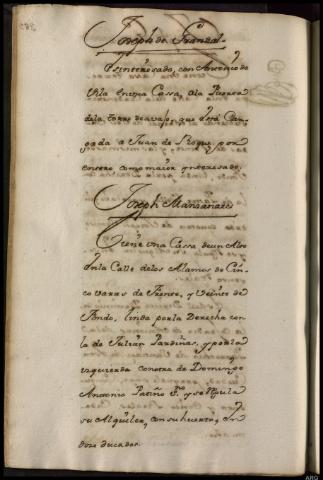 Joseph de Granzal
Es interesado, con Antonio de
Vila en otra Cassa, a la Puerta
de la torre de avajo, que está Car-
gada a Juan de Roque, por
entero como maior ynteresado.
Joseph Manzanares
tiene Una Cassa de un Alto
en la Calle de los Alamos de Cin-
co varas de Frente, y Veinte de
Fondo, linda por la Derecha con
la de Julian Pardiñas, y por la
izquierda con otra de Domingo
Antonio Patiño Pro y se Regula
su Alquiler, con su huerta, en
doze ducados
ARG